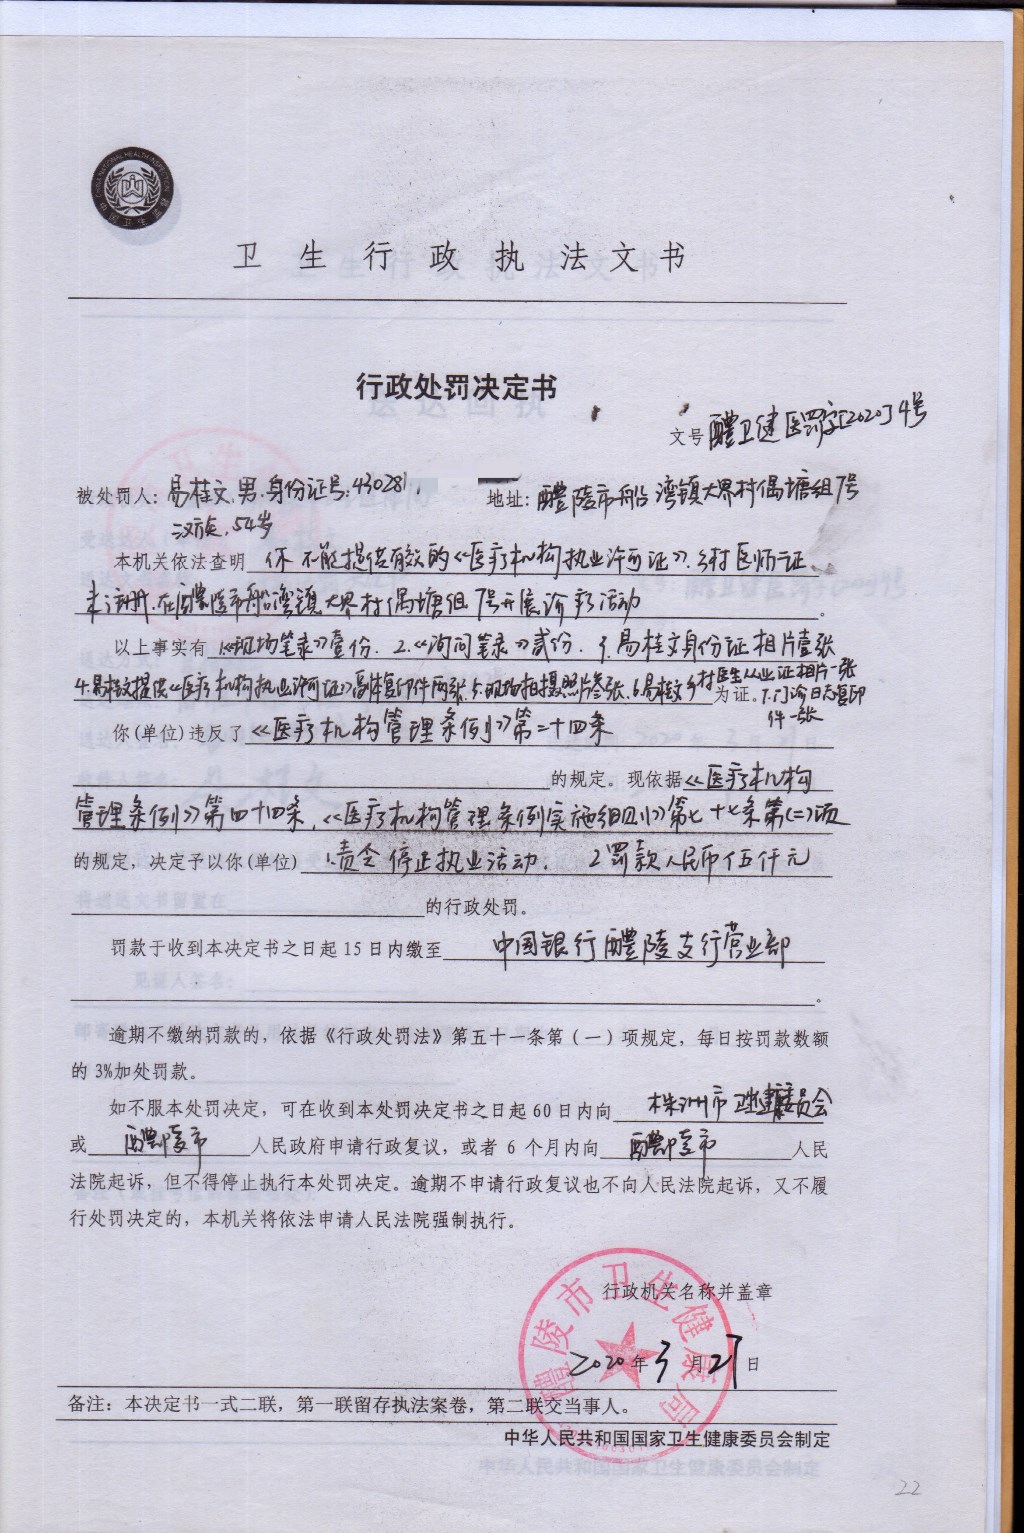 卫生行政执法文书
行政处罚决定书
文号 醴卫健医罚字[2020]4号
被处罚人：易桂文.男.身份证号:430281 地址：醴陵市船湾镇大界村偶塘组7号
汉族,54岁
本机关依法查明 你不能提供有效的《医疗机构执业许可证》.乡村医师证
未注册.在醴陵市船湾镇大界村偶塘组7号开展诊疗活动
以上事实有 1.《现场笔录》壹份.2.《询问笔录》贰份.3.易桂文身份证相片壹张
4.易桂文提供《医疗机构执业许可证》副本复印件两张.5.现场拍摄照片叁张.6.易桂文乡村医生从业证相片一张 为证。7.门诊日志复印
件一张
你(单位)违反了《医疗机构管理条例》第二十四条
的规定。现依据《医疗机构
管理条例》第四十四条.《医疗机构管理条例实施细则》第七十七条第(二)项
的规定，决定予以你(单位) 1.责令停止执业活动. 2.罚款人民币伍仟元
的行政处罚。
罚款于收到本决定书之日起15日内缴至 中国银行醴陵支行营业部
。
逾期不缴纳罚款的，依据《行政处罚法》第五十一条第（一）项规定，每日按罚款数额
的3%加处罚款。
如不服本处罚决定，可在收到本处罚决定书之日起60日内向 株洲市卫生健康委员会
或 醴陵市 人民政府申请行政复议，或者6个月内向 醴陵市 人民
法院起诉，但不得停止执行本处罚决定。逾期不申请行政复议也不向人民法院起诉，又不履
行处罚决定的，本机关将依法申请人民法院强制执行。
行政机关名称并盖章
醴陵市卫生健康局
2020年3月27日
备注：本决定书一式二联，第一联留存执法案卷，第二联交当事人。
中华人民共和国国家卫生健康委员会制定
22